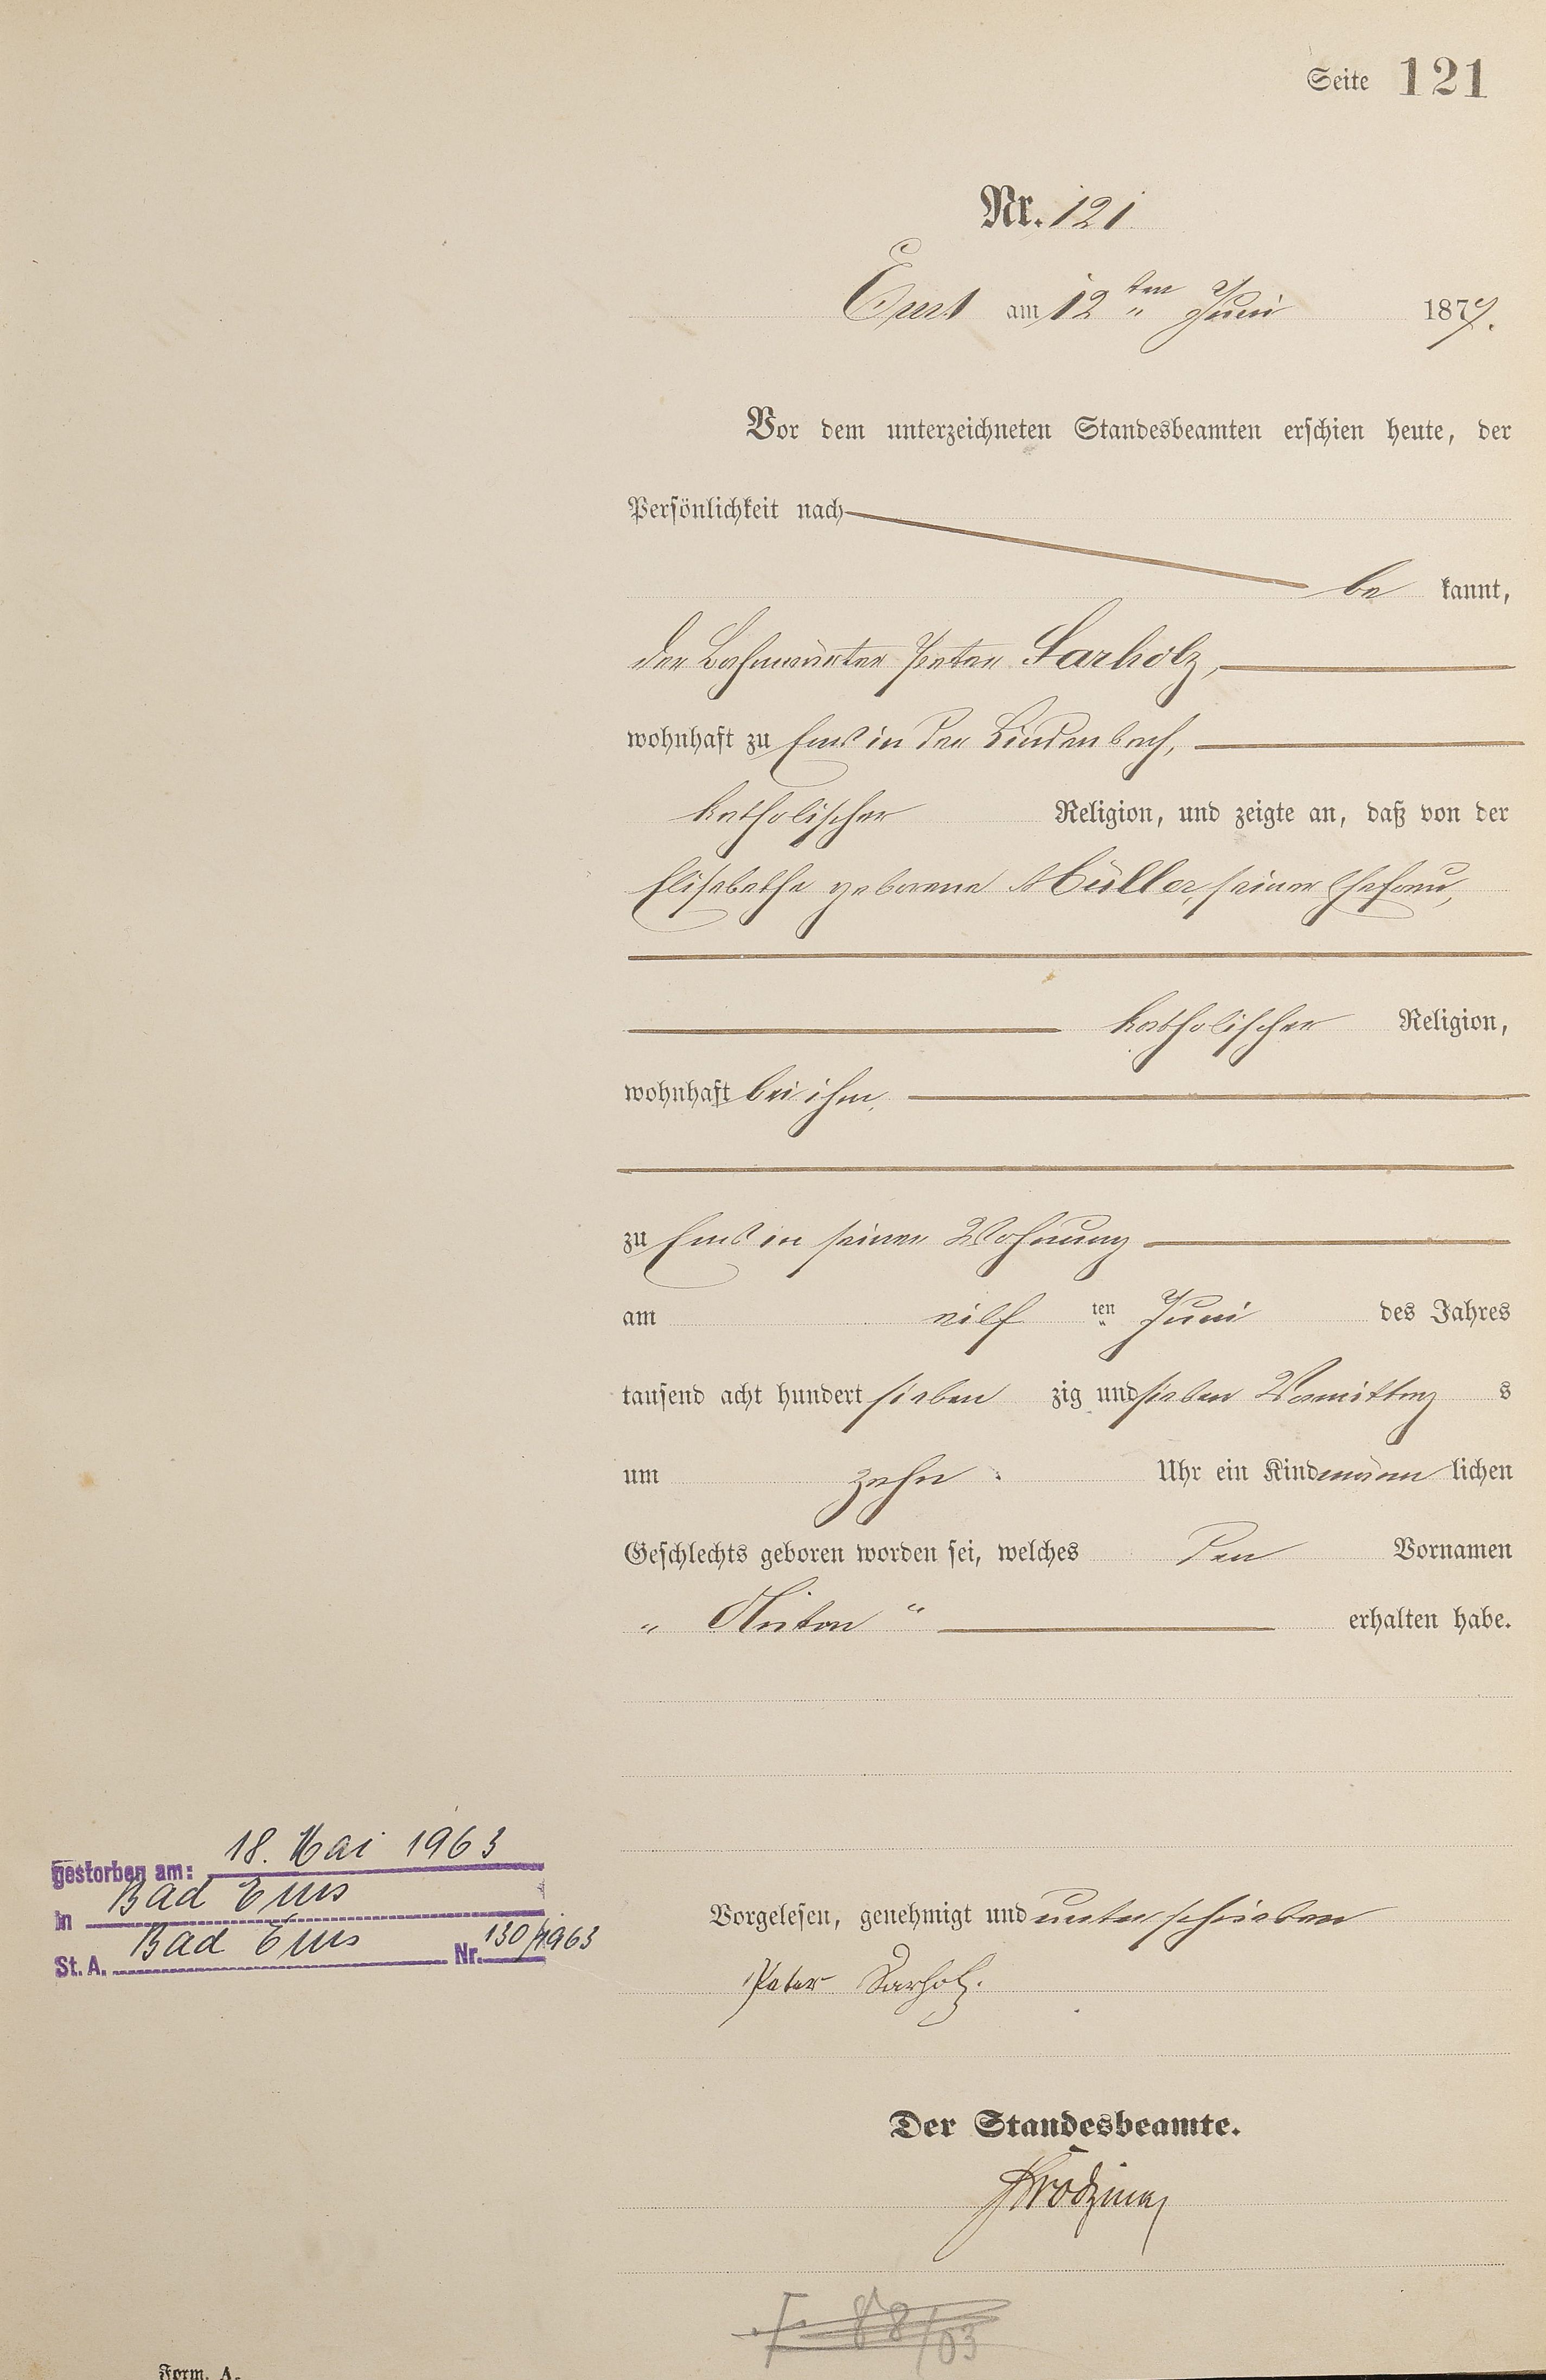 Seite 121
Nr. 121.
Ems am 12 ten " Juni 1877.
Vor dem unterzeichneten Standesbeamten erschien heute, der
Persönlichkeit nach
be kannt,
der Bahnwärter Peter Sarholz,
wohnhaft zu Ems in der Lindenbach,
katholischer Religion, und zeigte an, daß von der
Elisabethe geborene Müller, seiner Ehefrau,
katholischer Religion,
wohnhaft bei ihm,
zu Ems in seiner Wohnung
am eilf ten " Juni des Jahres
tausend acht hundert sieben zig und sieben Vormittag s
um zehn Uhr ein Kind männ lichen
Geschlechts geboren worden sei, welches den Vornamen
„ Anton “ erhalten habe.
gestorben am: 18. Mai 1963
in Bad Ems
St. A. Bad Ems Nr. 130/1963
Vorgelesen, genehmigt und unterschrieben
Peter Sarholz.
Der Standesbeamte.
F 88/03
Form. A.